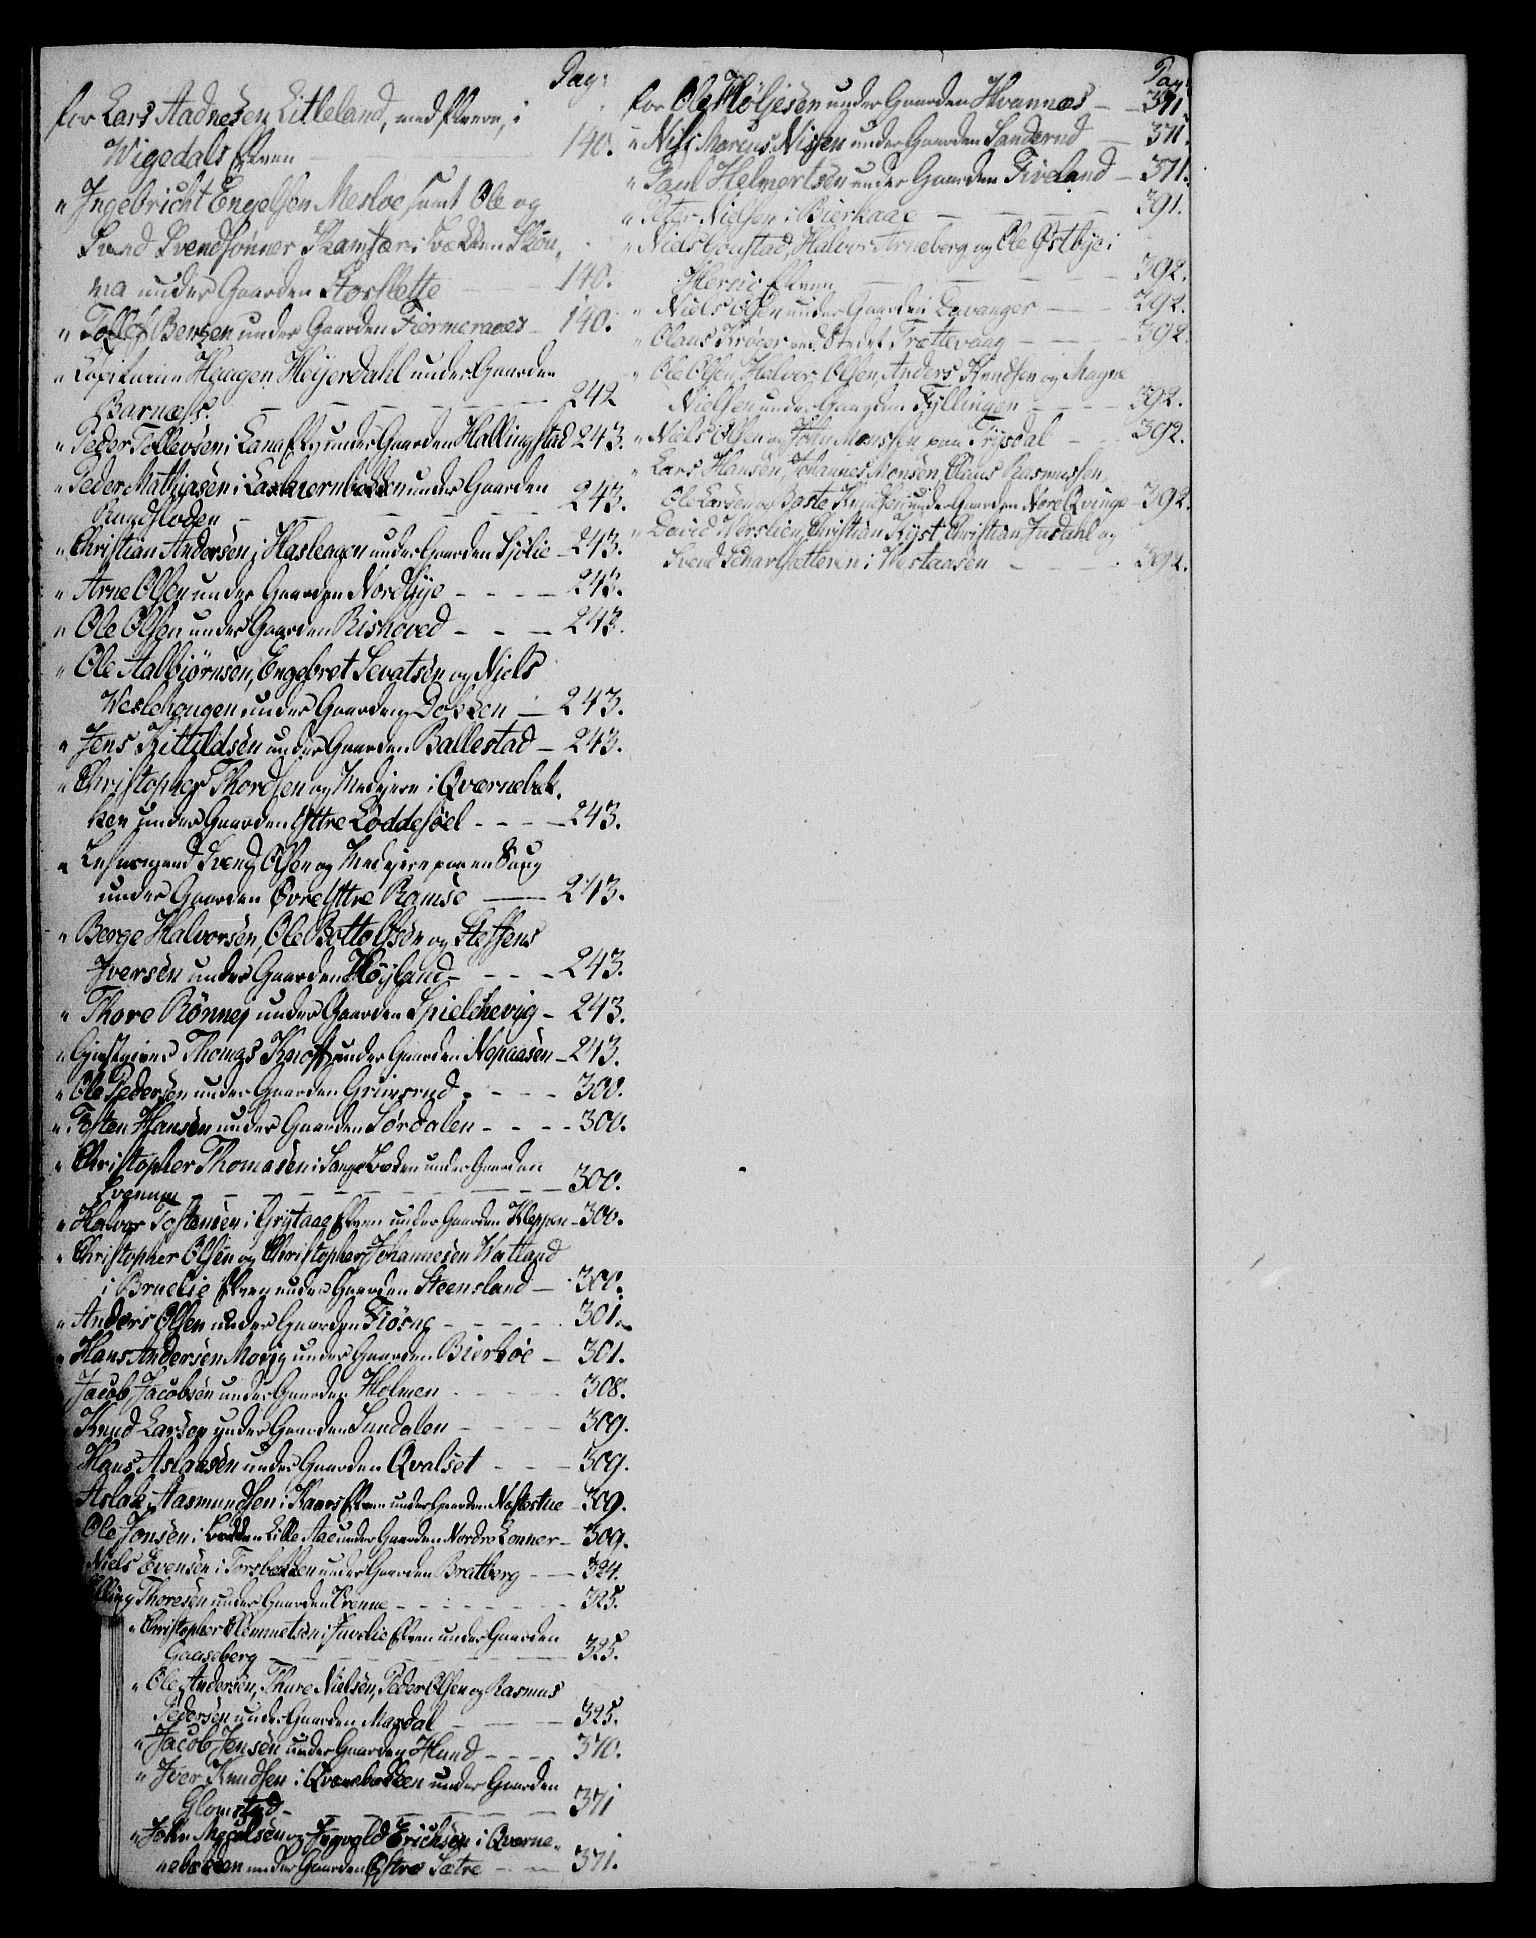 Pag:
for Lars Aadnesen Litleland, med flere, i
Wigedals Elven — 140.
" Ingebricht Engelsen Mesloe samt Ole og
Svend Svendsønner Skamfær i Bækken Skou,
va under Gaarden Storslette — 140.
" Tollef Bentsen under Gaarden Fiermeraaes — 140.
" Capitaine Haagen Heijerdahl under Gaarden
Barnæss. — 242
" Peder Tollevsen i Lana Elv under Gaarden Hallingstad 243.
" Peder Mathiasen i under Gaarden
Sundfloden — 243.
" Christian Andersen i Hasleaaen under Gaarden Sjølie — 243.
" Arne Olsen under Gaarden Nordbye — 243.
" Ole Olsen under Gaarden Rishoved — 243.
" Ole Aalbiørnsen, Engebret Sevatsen og Niels
Weslehougen under Gaarden Dokken — 243.
" Jens Kittildsen under Gaarden Ballestad — 243.
" Christopher Thordsen og Medejere i Qværnebek,
ken under Gaarden Yttre Loddesøel — 243.
" Lehnsmand Svend Olsen og Medejere paa en Saug
under Gaarden Øvre Yttre Ramse — 243.
" Berge Halvorsen, Ole Bottolfsen og Steffens
Iversen under Gaarden Høyland — 243.
" Thore Rönnej under Gaarden Spielchevig — 243.
" Giestgiver Thomas Knoff under Gaarden Nepaasen — 243.
" Ole Pedersen under Gaarden Grimsrud — 300.
" Tosten Hansen under Gaarden Sørdalen — 300.
" Christopher Thomasen i Lange Bækken under Gaarden
Svenum — 300.
" Halvor Tostensen i Grytaae Elven under Gaarden Kleppen — 300.
" Christopher Olsen og Christopher Johannesen Watland
i Bruelie Elven under Gaarden Steensland — 300.
" Anders Olsen under Gaarden Fiøsne — 301.
" Hans Andersen Movig under Gaarden Bierkøe — 301.
Jacob Jacobsen under Gaarden Holmen — 308.
Knud Larsen under Gaarden Sundalen — 309.
Hans Aslacsen under Gaarden Qvalset — 309.
Aslak Aasmundsen i Kaars Elven under Gaarden Nastestue — 309.
Ole Jonsen i Bækken Lille Aae under Gaarden Nordre Lonner — 309.
Niels Evensen i Forsbekken under Gaarden Bratberg — 324.
Elling Thoresen under Gaarden Krenne — 325.
" Christopher Clemmetsen i Juvelie Elven under Gaarden
Gaaseberg — 325.
" Ole Andersen, Thure Nielsen, Peder Olsen og Rasmus
Pedersen under Gaarden Mardal — 325.
" Jacob Jensen under Gaarden Hund — 370.
" Iver Knudsen i Qværnbekken under Gaarden
Glomstad — 371
" John Mechelsen og Ingvald Erichsen i Qværne-
bekken under Gaarden Østre Sætre — 371.
Pag:
for Ole Höljesen under Gaarden Hvannæs — 371.
" Nils Marcus Nissen under Gaarden Sanderud — 371.
" Paul Helmertsen under Gaarden Fiveland — 371.
" Peter Nielsen i Bierkaae — 391.
" Niels Gonstad, Halvor Arneberg og Ole Østbye i
Hersic Elven — 392.
" Niels Olsen under Gaarden Levanger — 392.
" Olaus Krøger ved Stedet Trættevaag — 392.
" Ole Olsen, Halvor Olsen, Anders Knudsen og Magne
Nielsen under Gaarden Fyllingen — 392.
" Niels Olsen og John Monssen paa Frysdal — 392.
" Lars Hansen, Johannes Monsen, Claus Rasmussen,
Ole Larsen og Baste Knudsen under Gaarden Nore Qvinge — 392.
" David Werslien, Christian Kyst, Christian Jusdahl og
Svend Scharfsætteren i Westaasen — 392.